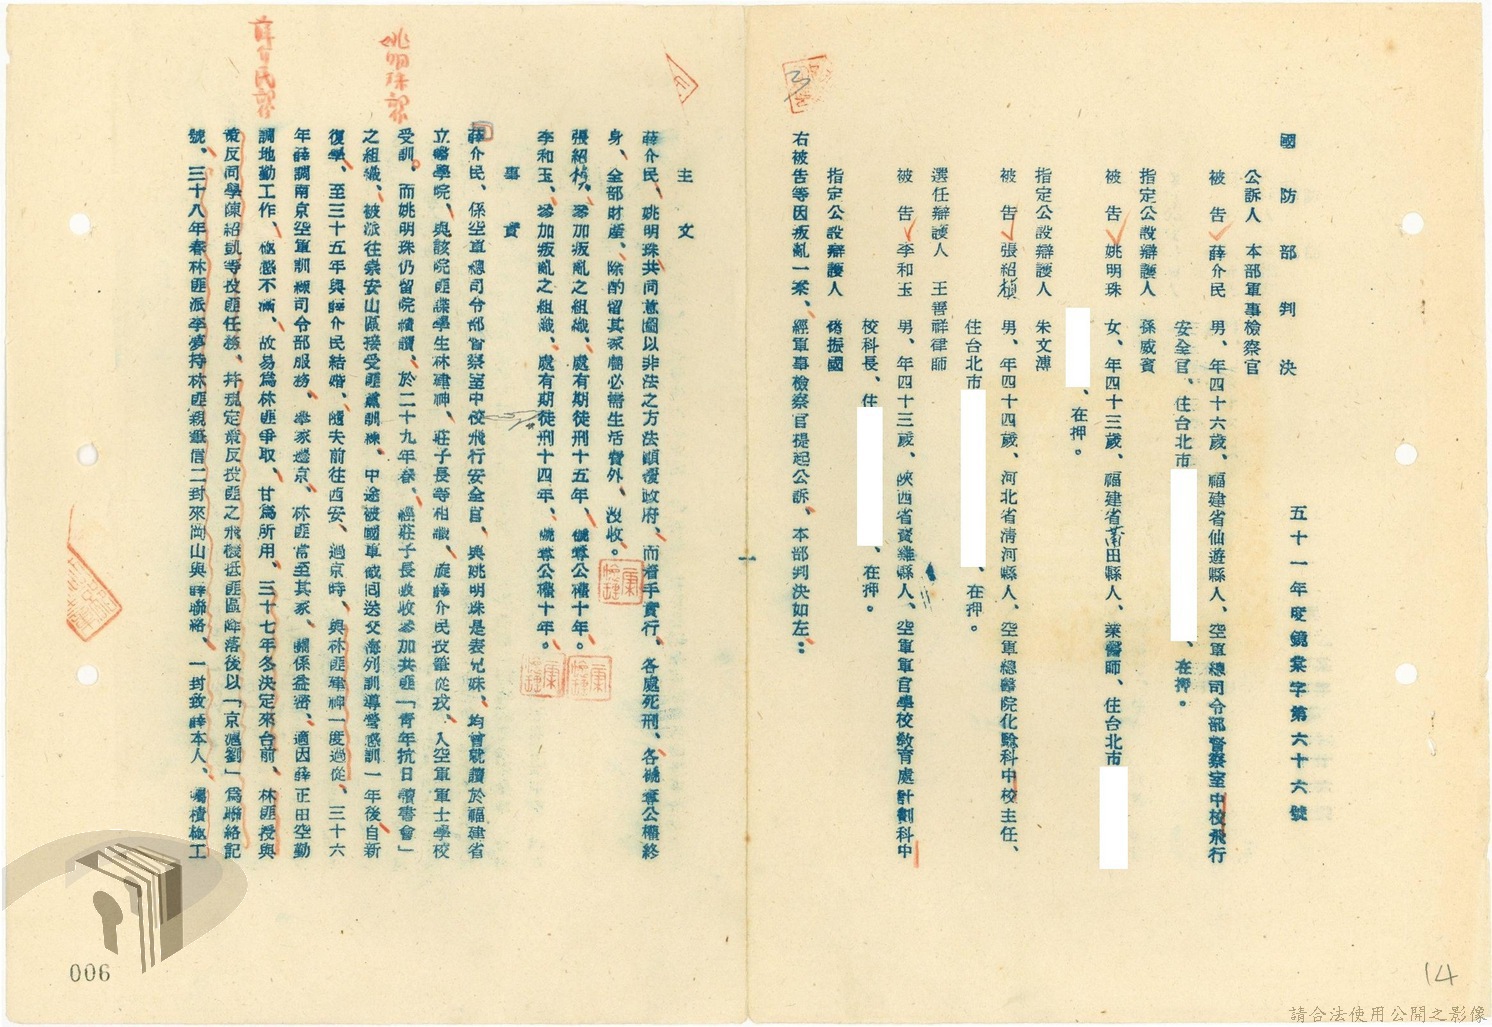 國防部判決
五十一年度鏡棠字第六十六號
公訴人 本部軍事檢察官
被告 薛介民 男、年四十六歲、福建省仙遊縣人、空軍總司令部督察室中校飛行
安全官、住台北市 、在押。
指定公設辯護人 孫威賓
被告 姚明珠 女、年四十三歲、福建省莆田縣人、業醫師、住台北市
、在押。
指定公設辯護人 朱文溥
被告 張紹楨 男、年四十四歲、河北省清河縣人、空軍總醫院化驗科中校主任、
住台北市 、在押。
選任辯護人 王善祥律師
被告 李和玉 男、年四十三歲、陝西省寶雞縣人、空軍軍官學校教育處計劃科中
校科長、住 、在押。
指定公設辯護人 褚振國
右被告等因叛亂一案、經軍事檢察官提起公訴、本部判決如左:
主文
薛介民、姚明珠共同意圖以非法之方法顛覆政府、而着手實行、各處死刑、各褫奪公權終
身、全部財產、除酌留其家屬必需生活費外、沒收。
張紹楨、參加叛亂之組織、處有期徒刑十五年、褫奪公權十年。
李和玉、參加叛亂之組織、處有期徒刑十四年、褫奪公權十年。
事實
薛介民、係空軍總司令部督察室中校飛行安全官、與姚明珠是表兄妹、均曾就讀於福建省
立醫學院、與該院匪諜學生林建神、莊子長等相識、旋薛介民投筆從戎、入空軍軍士學校
受訓。而姚明珠仍留院續讀、於二十九年春、經莊子長吸收參加共匪「青年抗日讀書會」
之組織、被派往崇安山區接受匪黨訓練、中途被國軍截回送父海列訓導營感訓一年後自新
復學、至三十五年與薛介民結婚、隨夫前往西安、過京時、與林匪建神一度過從、三十六
年薛調南京空軍訓練司令部服務、舉家遷京、林匪常至其家、關係益密、適因薛正田空勤
調地勤工作、極感不滿、故易為林匪爭取、甘為所用、三十七年冬決定來台前、林匪授與
策反同學陳紹凱等投匪任務、并規定策反投匪之飛機抵匪區降落後以「京滬劉」為聯絡記
號、三十八年春林匪派李夢持林匪親筆信二封來岡山與薛聯絡、一封致薛本人、囑積極工
姚明珠部
薛介民部
006
14
請合法使用公開之影像